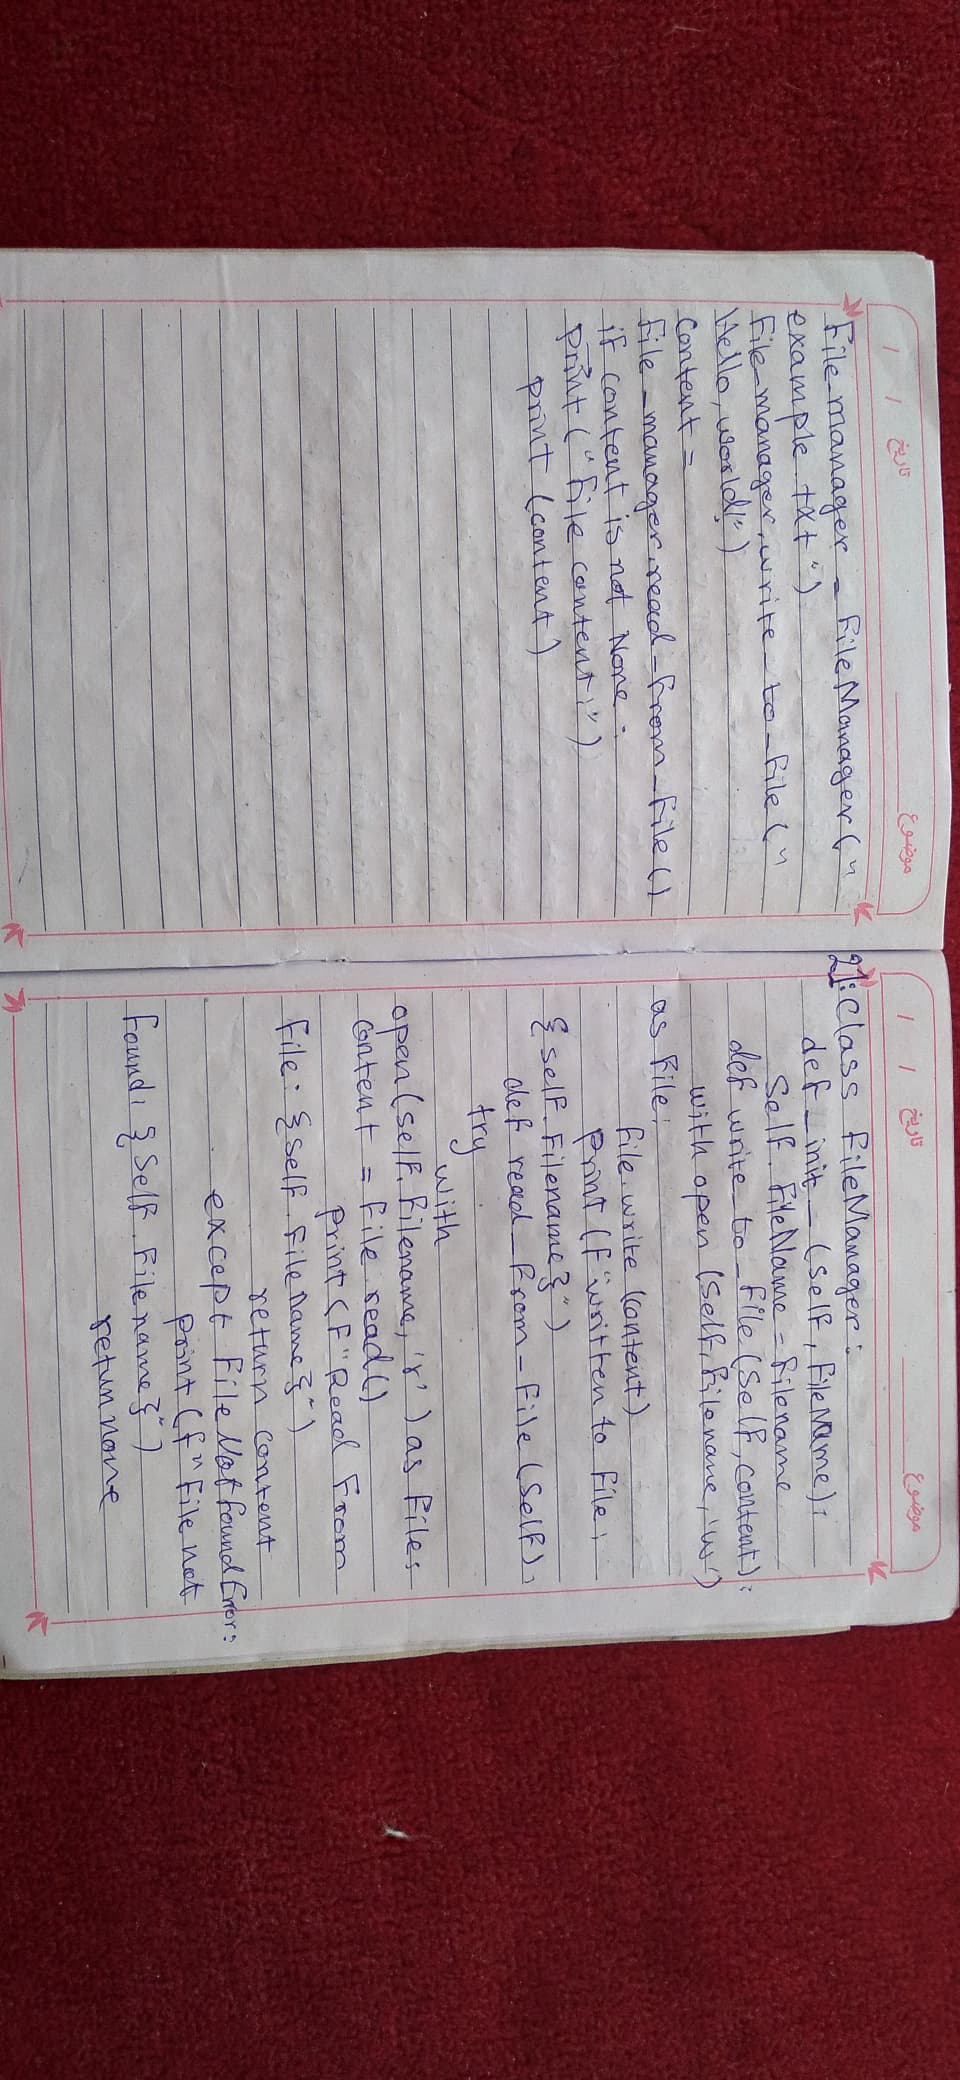 موضوع
تاریخ
/ /
File_manager = FileManager("
example.txt")
File_manager.write_to_file("
Hello, world!")
Content =
File_manager.read_from_file()
if content is not None:
print("File content:")
print(content)
موضوع
تاریخ
/ /
21:class FileManager:
def_init_(self, FileName):
Self.FileName = Filename
def write_to_File(Self, content):
with open(Self.Filename,'w')
as File:
File.write(content)
print(F"written to File:
{self.Filename}")
def read_From_File(Self):
try
with
open(self.Filename,'r') as File:
Content = File.read()
print(F"Read From
File: {self.FileName}")
return content
except FileNotFoundError:
print(F"File not
Found: {Self.Filename}")
retun none